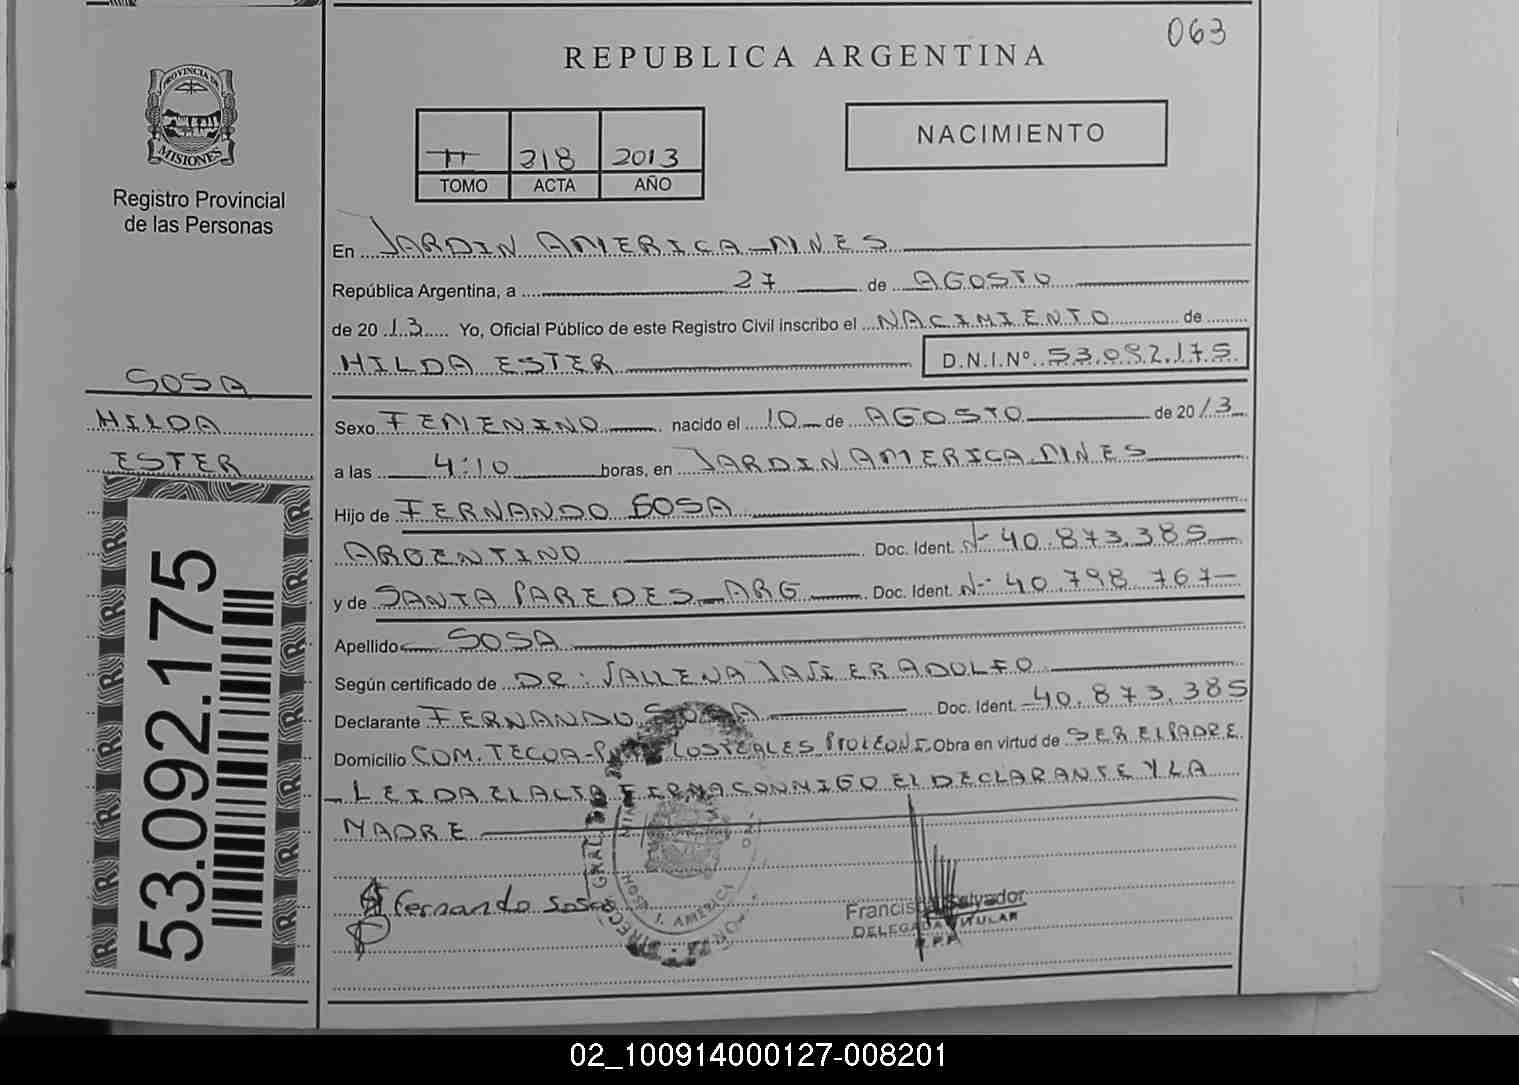 063
REPUBLICA ARGENTINA
PROVINCIA DE
MISIONES
Registro Provincial
de las Personas
II 218 2013
TOMO ACTA AÑO
NACIMIENTO
En JARDIN AMERICA MNES
República Argentina, a 27 de AGOSTO
de 2013 Yo, Oficial Público de este Registro Civil inscribo el NACIMIENTO de
HILDA ESTER D.N.I.Nº 53.092.175
SOSA
HILDA
ESTER
53.092.175
Sexo FEMENINO nacido el 10 de AGOSTO de 2013
a las 4:10 horas, en JARDIN AMERICA MNES
Hijo de FERNANDO SOSA
ARGENTINO Doc. Ident. Nº 40.873.385
y de SANTA PAREDES ARG Doc. Ident. Nº 40.798.767
Apellido SOSA
Según certificado de DR: JAVIER ADOLFO
Declarante FERNANDO SOSA Doc. Ident. 40.873.385
Domicilio COM. Obra en virtud de SER EL PADRE
LEIDA EL ACTA FIRMA CONMIGO EL DECLARANTE Y LA
MADRE
Fernando Sosa
J. AMERICA
Salvador
TITULAR
R.P.P.
02_100914000127-008201